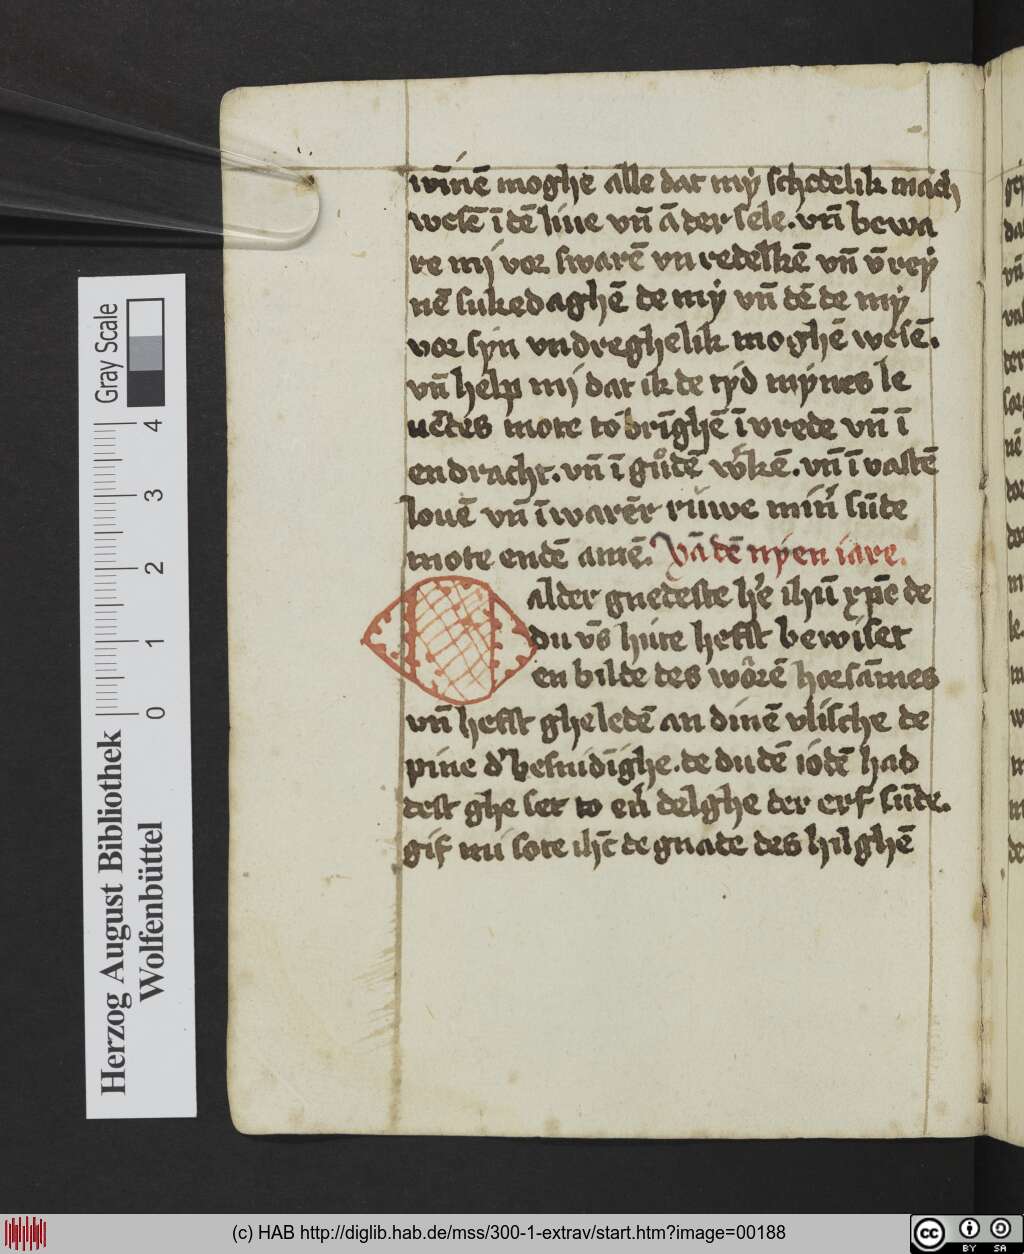 wīnē moghē alle dat mẏ schedelik mach
wesē ī dē liue vn̄ ā der sele. vn̄ bewa
re mi vor swarē vn redelkē vn̄ v̄reẏ
nē sukedaghē de mẏ vn̄ dē de mẏ
vor sẏn vndreghelik moghē wesē.
vn̄ help mi dat ik de tẏd mẏnes le
uēdes mote tobrīghē ī vrede vn̄ ī
endracht. vn̄ ī gůdē w̓kē. vn̄ ī vastē
louē vn̄ ī warēr rüwe min̓ sūde
mote endē amē. Vā dē nẏen iare.
O alder gnedeste he̓ ihū xp̄e de
du vs̄ hüte hefst bewiset
en bilde des wôrē horsāmes
vn̄ hefst gheledē an dinē vlische de
pine d̓ besnidīghe. de du dē iödē had
dest ghe set to en̓ delghe der erf sūde.
gif mi sote ihc̄ de gnade des hilghē
Gray Scale
0 1 2 3 4
Herzog August Bibliothek
Wolfenbüttel
(c) HAB http://diglib.hab.de/mss/300-1-extrav/start.htm?image=00188
cc BY SA